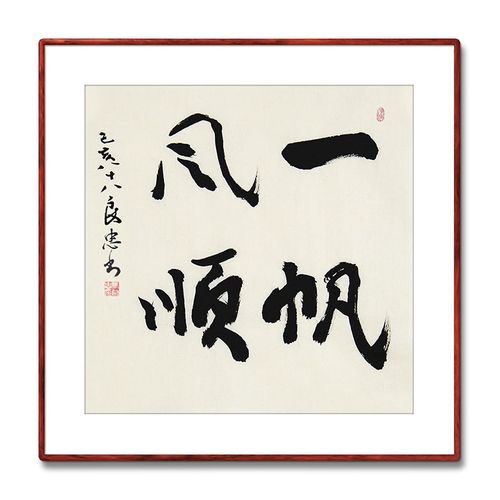 一帆
风顺
己亥八十八良忠书